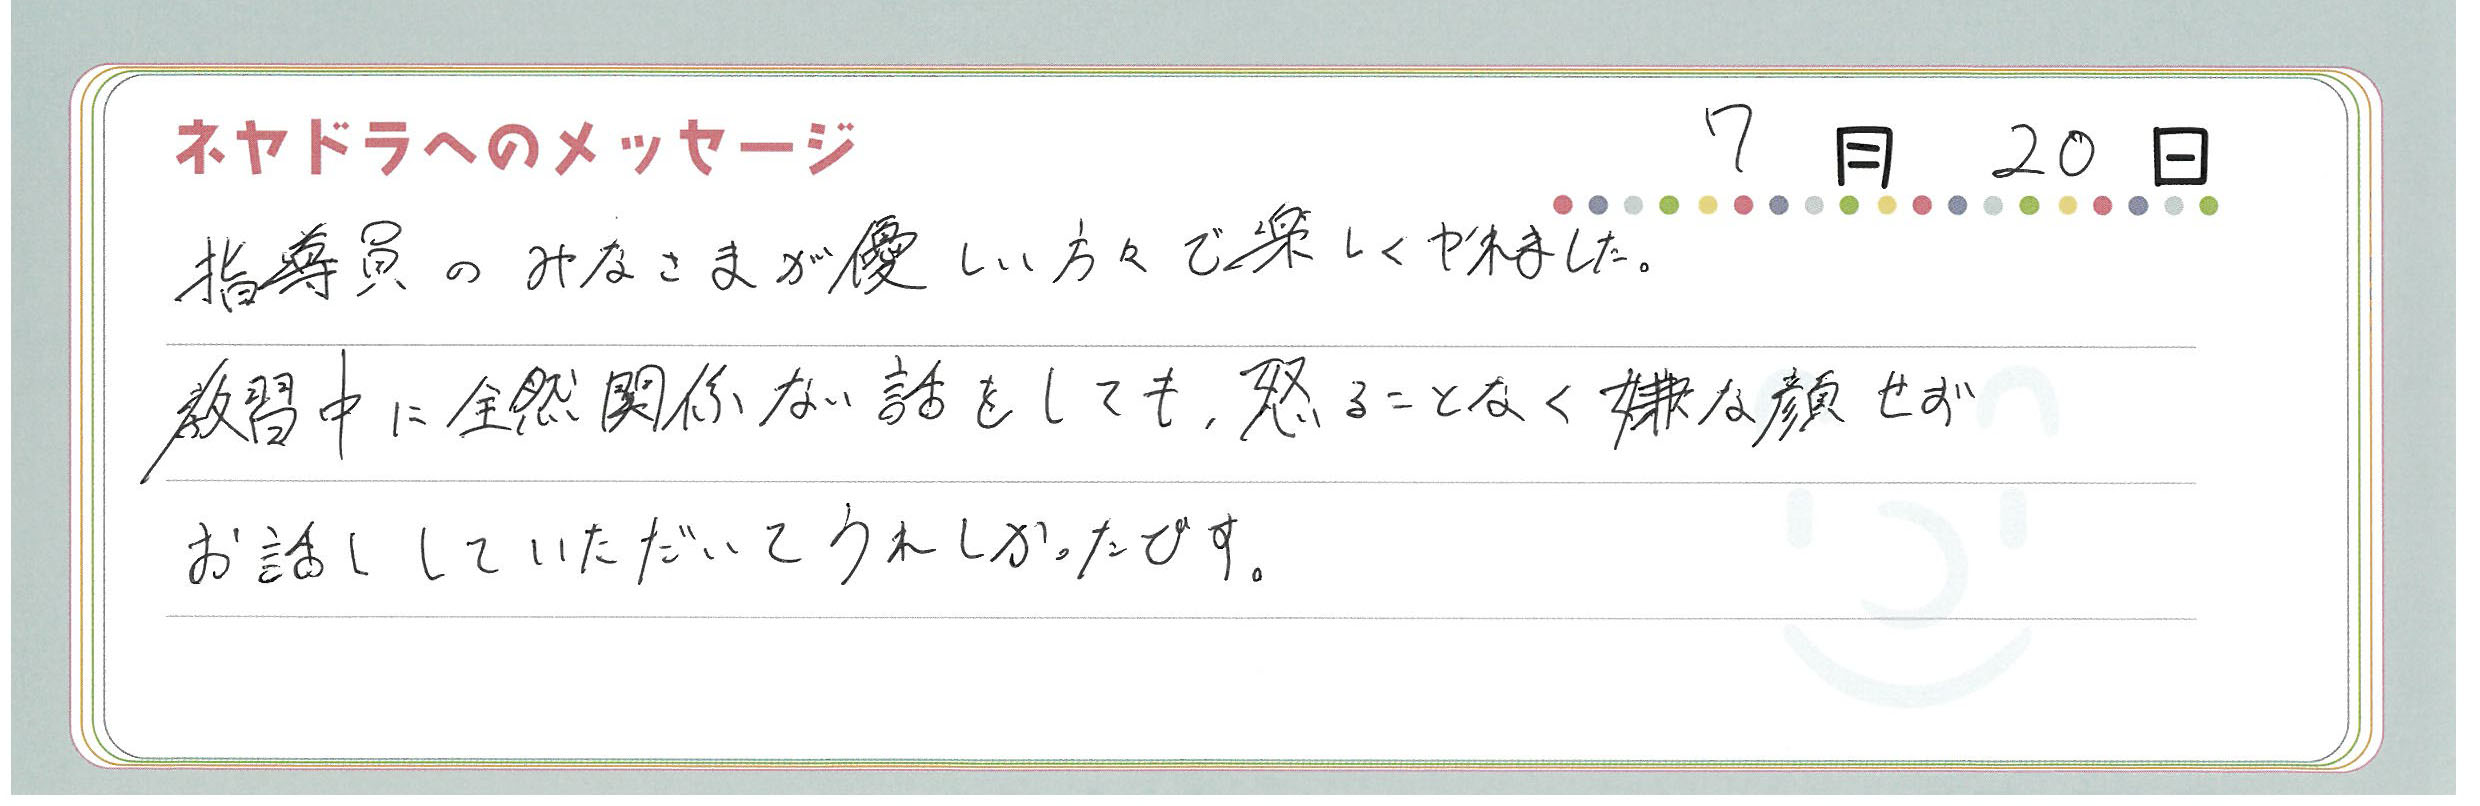 ネヤドラへのメッセージ
7月20日
指導員のみなさまが優しい方々で楽しくやれました。
教習中に全然関係ない話をしても、怒ることなく嫌な顔せず
お話ししていただいてうれしかったです。